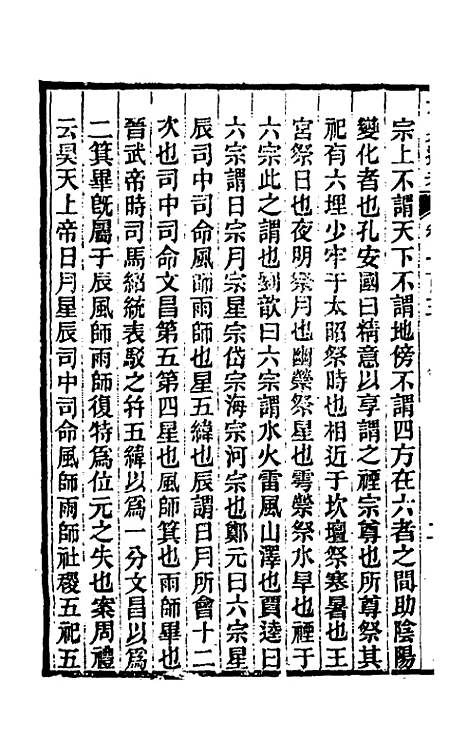 宗上不謂天下不謂地傍不謂四方在六者之間助陰陽
變化者也孔安國曰精意以享謂之禋宗尊也所尊祭其
祀有六埋少牢于太昭祭時也相近于坎壇祭寒暑也王
宮祭日也夜明祭月也幽禜祭星也雩禜祭水旱也禋于
六宗此之謂也劉歆曰六宗謂水火雷風山澤也賈逵曰
六宗謂日宗月宗星宗岱宗海宗河宗也鄭元曰六宗星
辰司中司命風師雨師也星五緯也辰謂日月所會十二
次也司中司命文昌第五第四星也風師箕也雨師畢也
晉武帝時司馬紹統表駮之幷五緯以爲一分文昌以爲
二箕畢旣屬于辰風師雨師復特爲位元之失也案周禮
云昊天上帝日月星辰司中司命風師雨師社稷五祀五